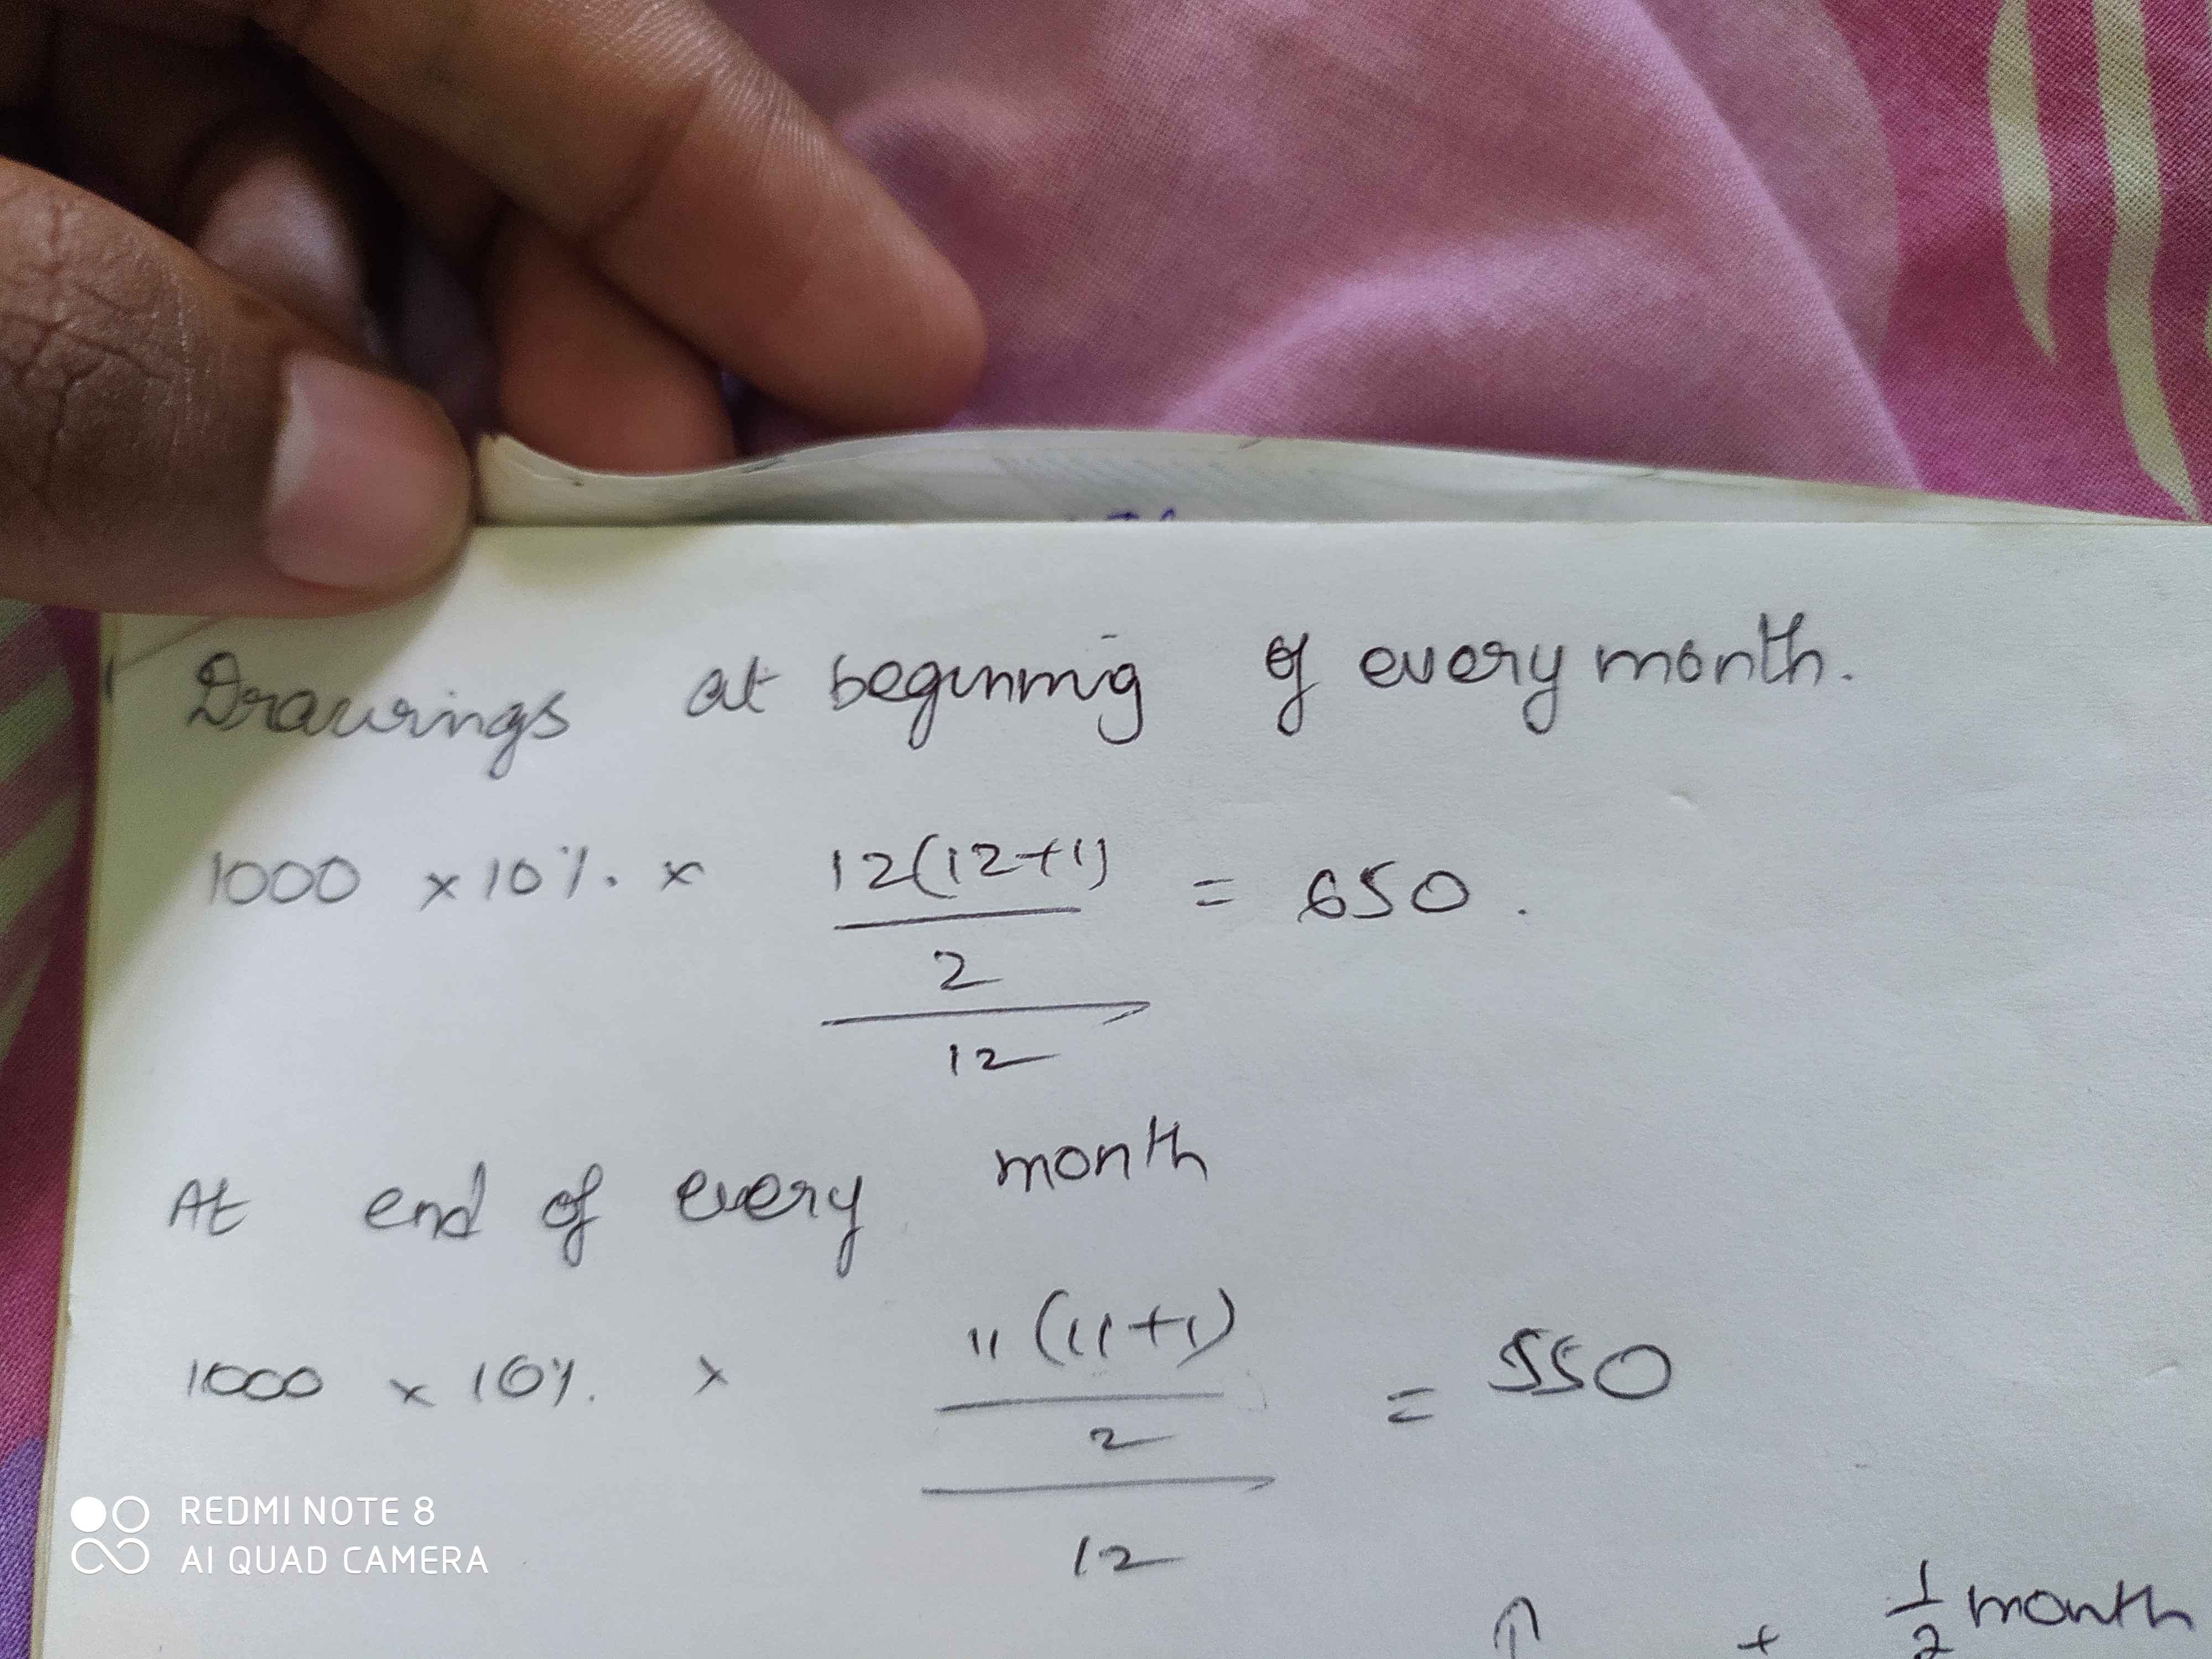 Drawings at beginning of every month.
1000 × 10%. × 12(12+1) = 650.
2
12
At end of every month
1000 × 10%. × 11(11+1) = 550
2
12
+ 1/2 month
REDMI NOTE 8
AI QUAD CAMERA